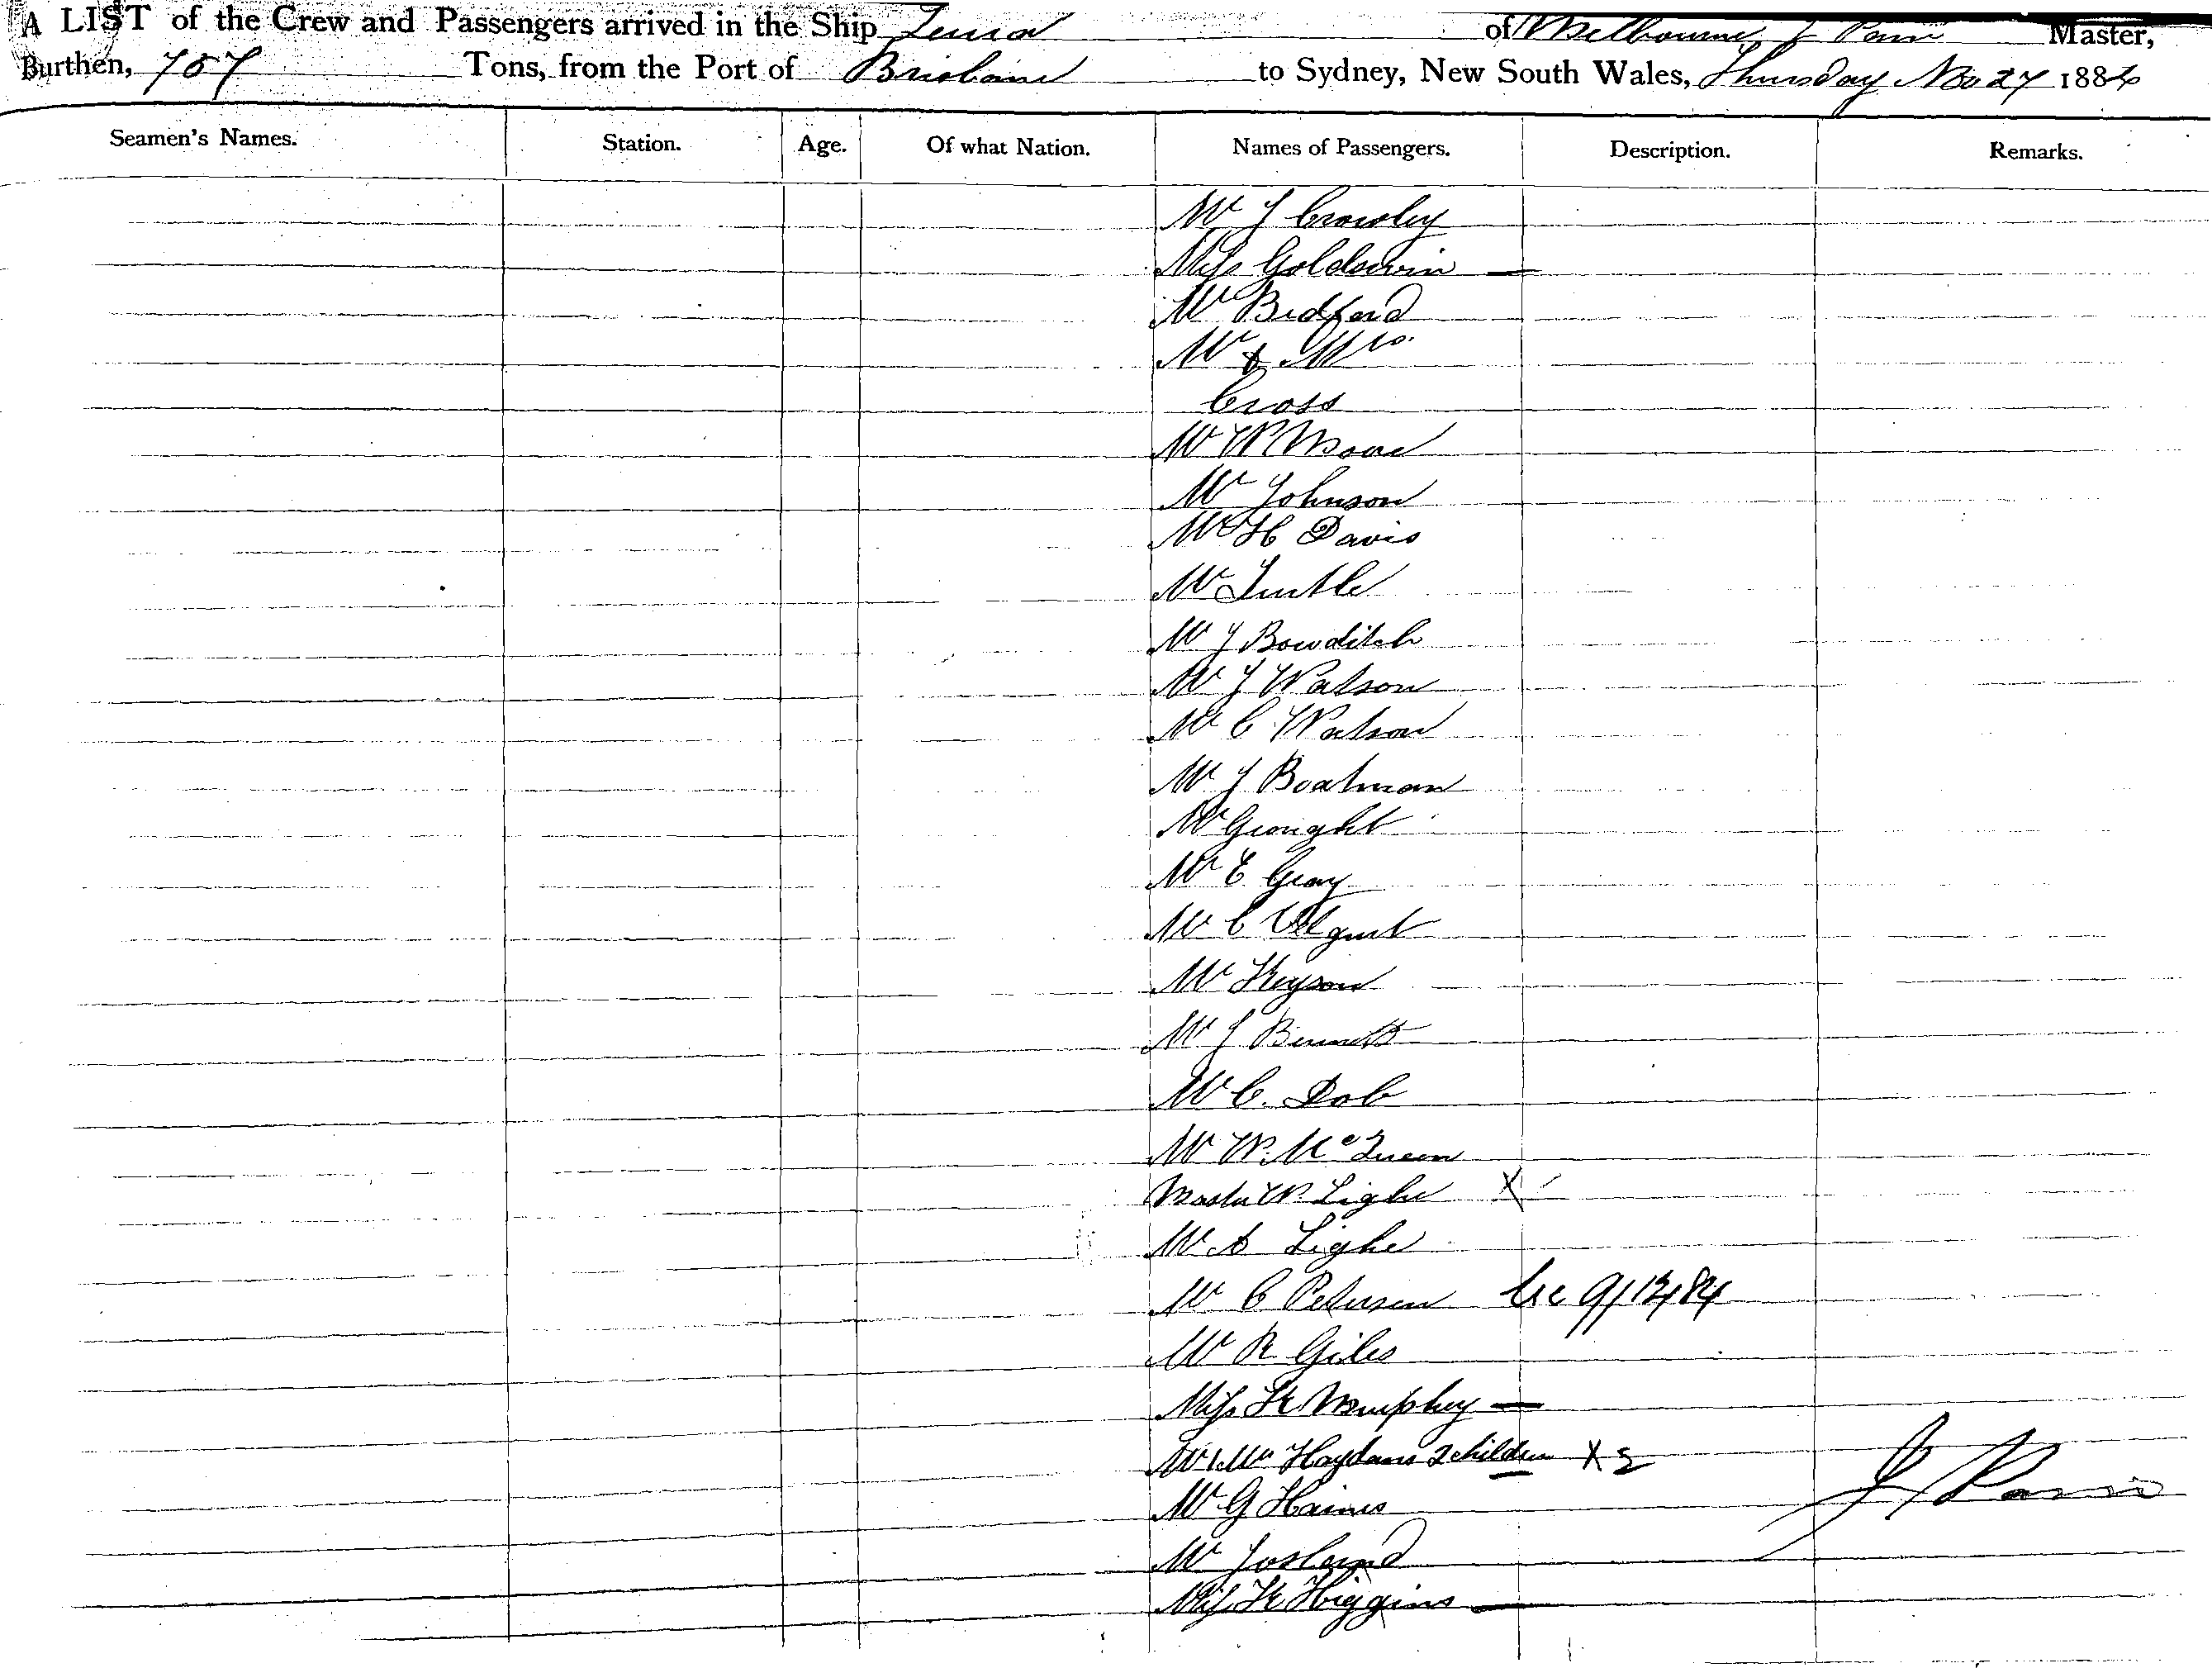 A LIST of the Crew and Passengers arrived in the Ship of Melbourne J Master,
Burthen, 707 Tons, from the Port of Brisbane to Sydney, New South Wales, Thursday Nov 27 1884
Seamen's Names. Station. Age. Of what Nation. Names of Passengers. Description. Remarks.
Mr J Crowley
Miss Goldswin —
Mr Bedford
Mr & Mrs.
Cross
Mr W Moore
Mr Johnson
Mr H Davis
Mr Tuttle
Mr J Bowditch
Mr J Watson
Mr C Watson
Mr J Boatman
Mr
Mr E Gray
Mr C
Mr
Mr J Bennett
Mr C. Dob
Mr W. McQueen
Master W. Lighe X
Mr A Lighe
Mr C Petersen 9/12/84
Mr R Giles
Miss K Murphey —
Mr & Mrs Haydans 2 children X 2
Mr G Haines
Mr Josland
Miss K Higgins —